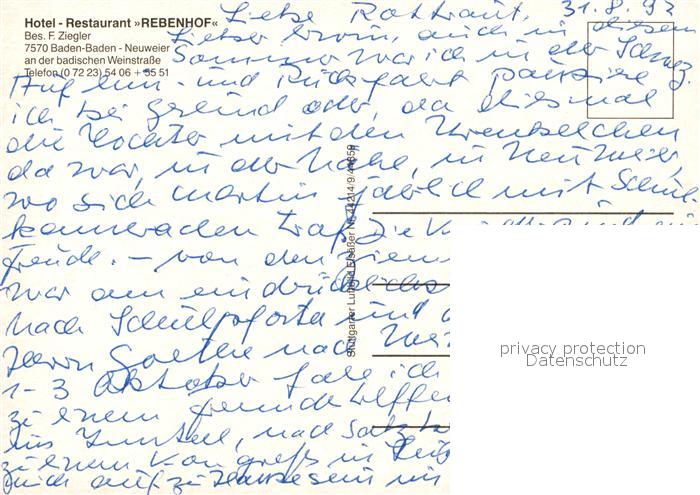 Hotel - Restaurant »REBENHOF«
Bes. F. Ziegler
7570 Baden-Baden - Neuweier
an der badischen Weinstraße
Telefon (0 72 23) 54 06 + 55 51
Liebe Rottraut, 31.8.92
Lieber Erwin, auch in diesem
Sommer war ich in der Schweiz.
Auf hin- und Rückfahrt pausiere
ich bei Freund oder, da diesmal
die Tochter mit den Urenkelchen
da war, in der Nähe, in Neuweier,
wo sich Martin jährlich mit Schul-
kameraden traf. Die
Freude. - von den
war am eindrücklichs
nach Schulpforta und
Herrn Goethe nach
1-3 Oktober fahre ich
zu einem Freundetreffen
nach Salz
zu einem Kongreß in
mich auf zu Hause sein in
Stuttgarter Luftbild Elsäßer
privacy protection
Datenschutz